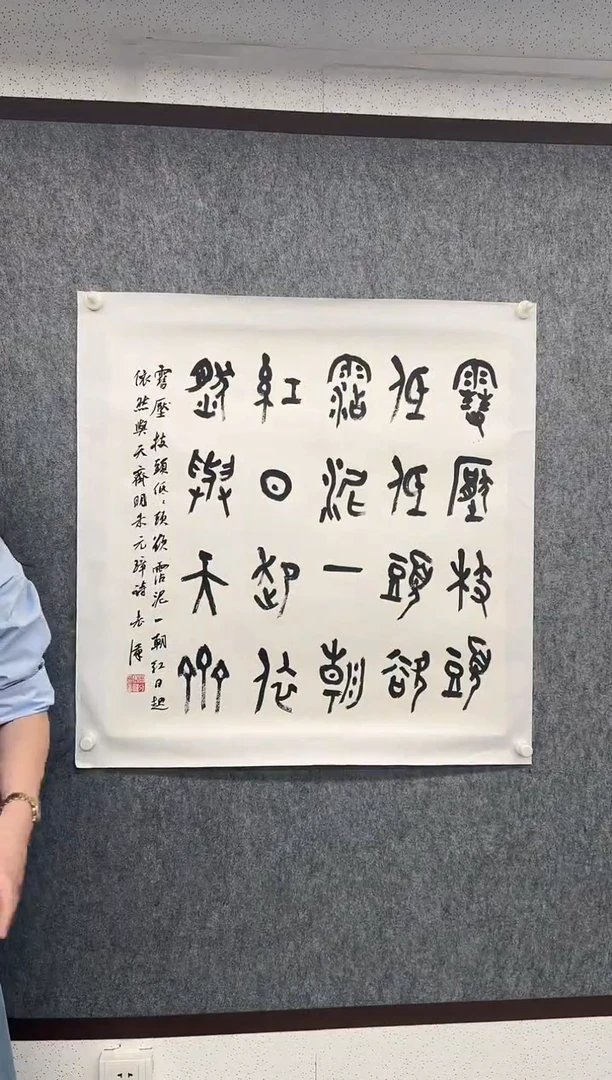 雪壓枝頭
低低頭欲
霑泥一朝
紅日起依
然與天齊
雪壓枝頭低〻頭欲霑泥一朝紅日起
依然與天齊明朱元璋詩